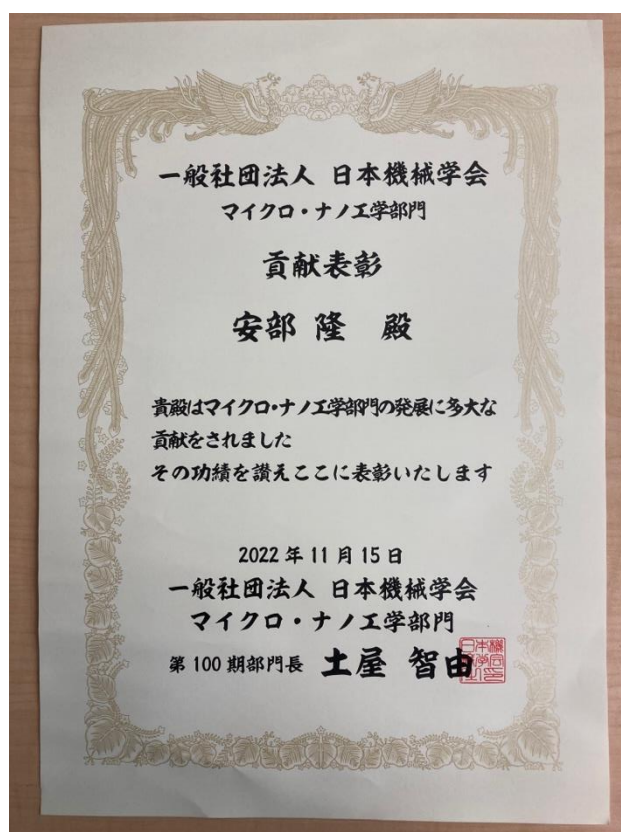 一般社団法人 日本機械学会
マイクロ・ナノ工学部門
貢献表彰
安部 隆 殿
貴殿はマイクロ・ナノ工学部門の発展に多大な
貢献をされました
その功績を讃えここに表彰いたします
2022年11月15日
一般社団法人 日本機械学会
マイクロ・ナノ工学部門
第100期部門長 土屋 智由